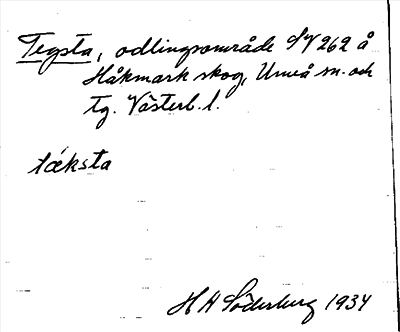 Tegsta, odlingsområde SV 262 å
Håkmark skog, Umeå sn. och
tg. Västerb. l.
tæksta
H A Söderberg 1934